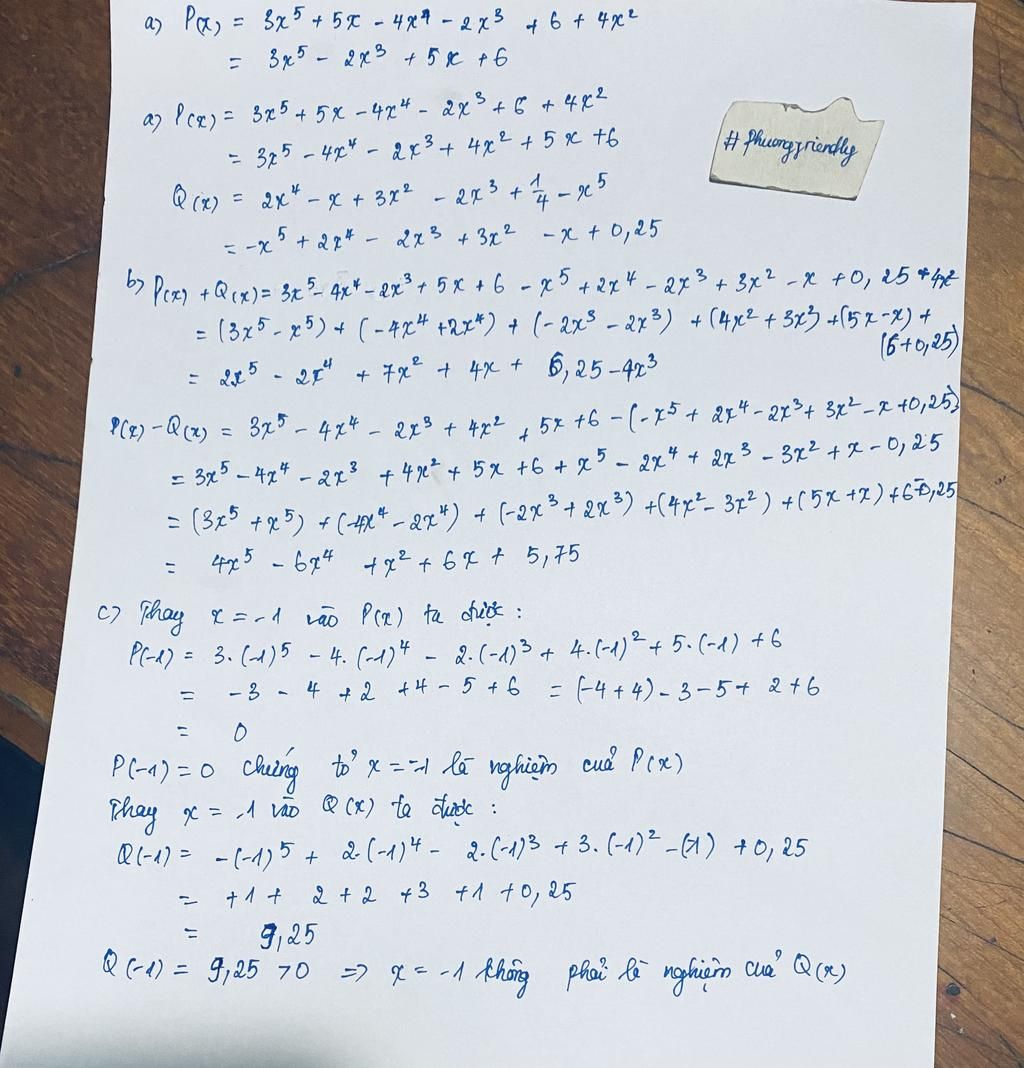 a) P(x) = 3x⁵ + 5x - 4x⁴ - 2x³ + 6 + 4x²
= 3x⁵ - 2x³ + 5x + 6
a) P(x) = 3x⁵ + 5x - 4x⁴ - 2x³ + 6 + 4x²
= 3x⁵ - 4x⁴ - 2x³ + 4x² + 5x + 6
# Phuongfriendly
Q(x) = 2x⁴ - x + 3x² - 2x³ + 1/4 - x⁵
= -x⁵ + 2x⁴ - 2x³ + 3x² - x + 0,25
b) P(x) + Q(x) = 3x⁵ - 4x⁴ - 2x³ + 5x + 6 - x⁵ + 2x⁴ - 2x³ + 3x² - x + 0,25 + 4x²
= (3x⁵ - x⁵) + (-4x⁴ + 2x⁴) + (-2x³ - 2x³) + (4x² + 3x²) + (5x - x) +
(6 + 0,25)
= 2x⁵ - 2x⁴ + 7x² + 4x + 6,25 - 4x³
P(x) - Q(x) = 3x⁵ - 4x⁴ - 2x³ + 4x² + 5x + 6 - (-x⁵ + 2x⁴ - 2x³ + 3x² - x + 0,25)
= 3x⁵ - 4x⁴ - 2x³ + 4x² + 5x + 6 + x⁵ - 2x⁴ + 2x³ - 3x² + x - 0,25
= (3x⁵ + x⁵) + (-4x⁴ - 2x⁴) + (-2x³ + 2x³) + (4x² - 3x²) + (5x + x) + 6 - 0,25
= 4x⁵ - 6x⁴ + x² + 6x + 5,75
c) Thay x = -1 vào P(x) ta được :
P(-1) = 3.(-1)⁵ - 4.(-1)⁴ - 2.(-1)³ + 4.(-1)² + 5.(-1) + 6
= -3 - 4 + 2 + 4 - 5 + 6 = (-4 + 4) - 3 - 5 + 2 + 6
= 0
P(-1) = 0 chứng tỏ x = -1 là nghiệm cuả P(x)
Thay x = -1 vào Q(x) ta được :
Q(-1) = -(-1)⁵ + 2.(-1)⁴ - 2.(-1)³ + 3.(-1)² - (-1) + 0,25
= +1 + 2 + 2 + 3 + 1 + 0,25
= 9,25
Q(-1) = 9,25 > 0 => x = -1 không phải là nghiệm cuả Q(x)